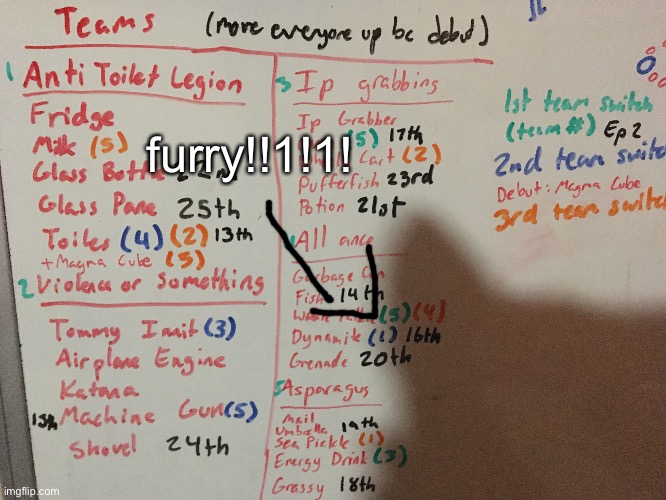 Teams (more everyone up bc debut)
1 Anti Toilet Legion
Fridge
Milk (5)
furry!!1!1!
Glass Bottle
Glass Pane 25th
Toilet (4) (2) 13th
+Magma Cube (5)
2 Violence or Something
Tommy Innit (3)
Airplane Engine
Katana
15th Machine Gun (5)
Shovel 24th
3 Ip grabbing
Ip Grabber
(5) 17th
Cart (2)
Pufferfish 23rd
Potion 21st
Alliance
Garbage Can
Fish 14th
(5) (4)
Dynamite (1) 16th
Grenade 20th
5 Asparagus
mail
Umbrella 19th
Sea Pickle (1)
Energy Drink (3)
Grassy 18th
1st team switch
(team #) Ep 2
2nd team switch
Debut: Magma Cube
3rd team switch
imgflip.com